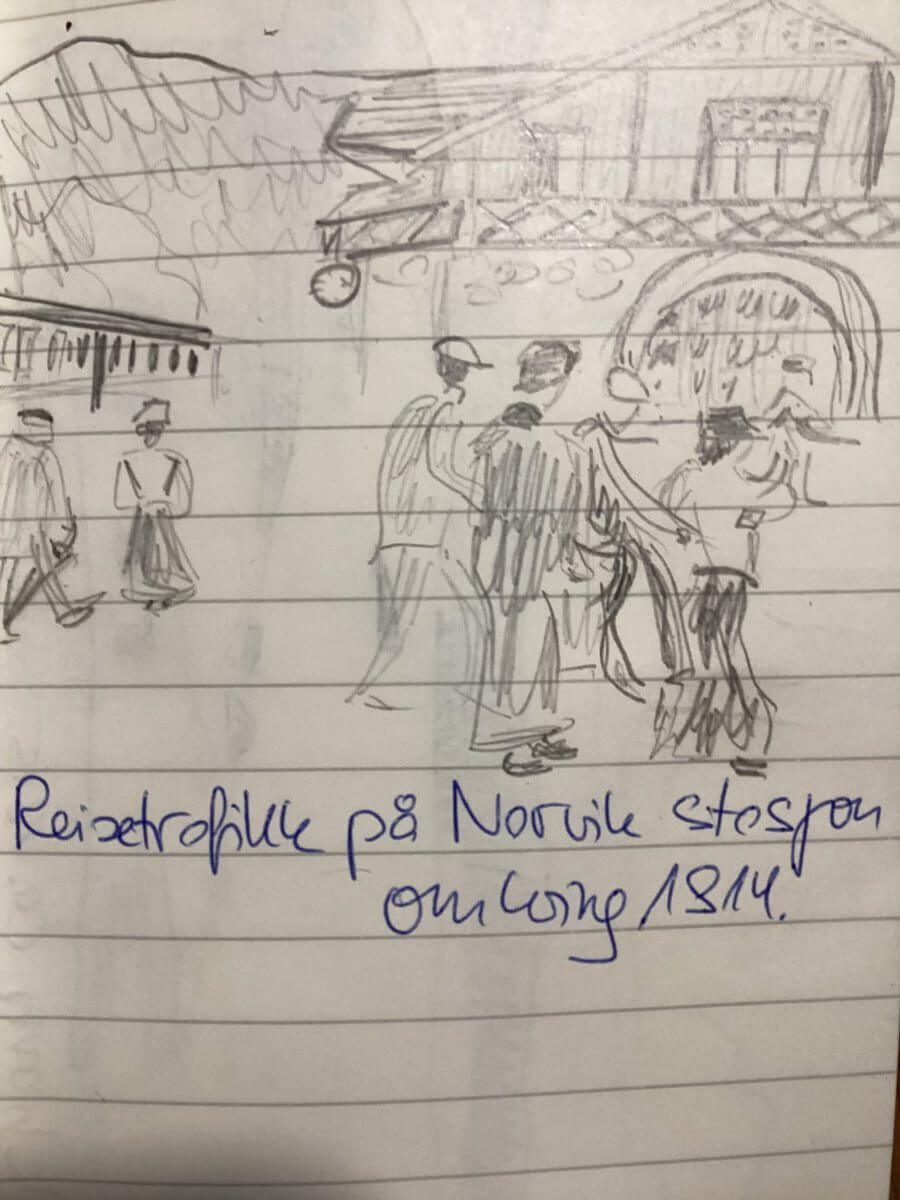 Reisetrafikk på Narvik stasjon
omkring 1914.